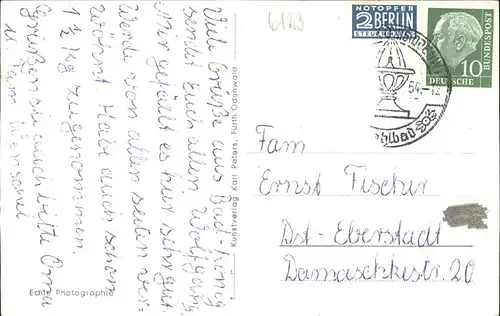 6123
NOTOPFER
2 BERLIN
STEUERMARKE
DEUTSCHE
BUNDESPOST
10
54.-12
Viele Grüße aus Bad-König
sendet Euch allen Wolfgang
Mir gefällt es hier sehr gut.
Werde von allen seiten ver-
wöhnt Habe auch schon
1 ½ kg zugenommen.
Grüßen sie auch bitte Oma
u. Fam
Kunstverlag Karl Peters, Fürth Odenwald
Echte Photographie
Fam
Ernst Fischer
Dst-Eberstadt
Damaschkestr. 20